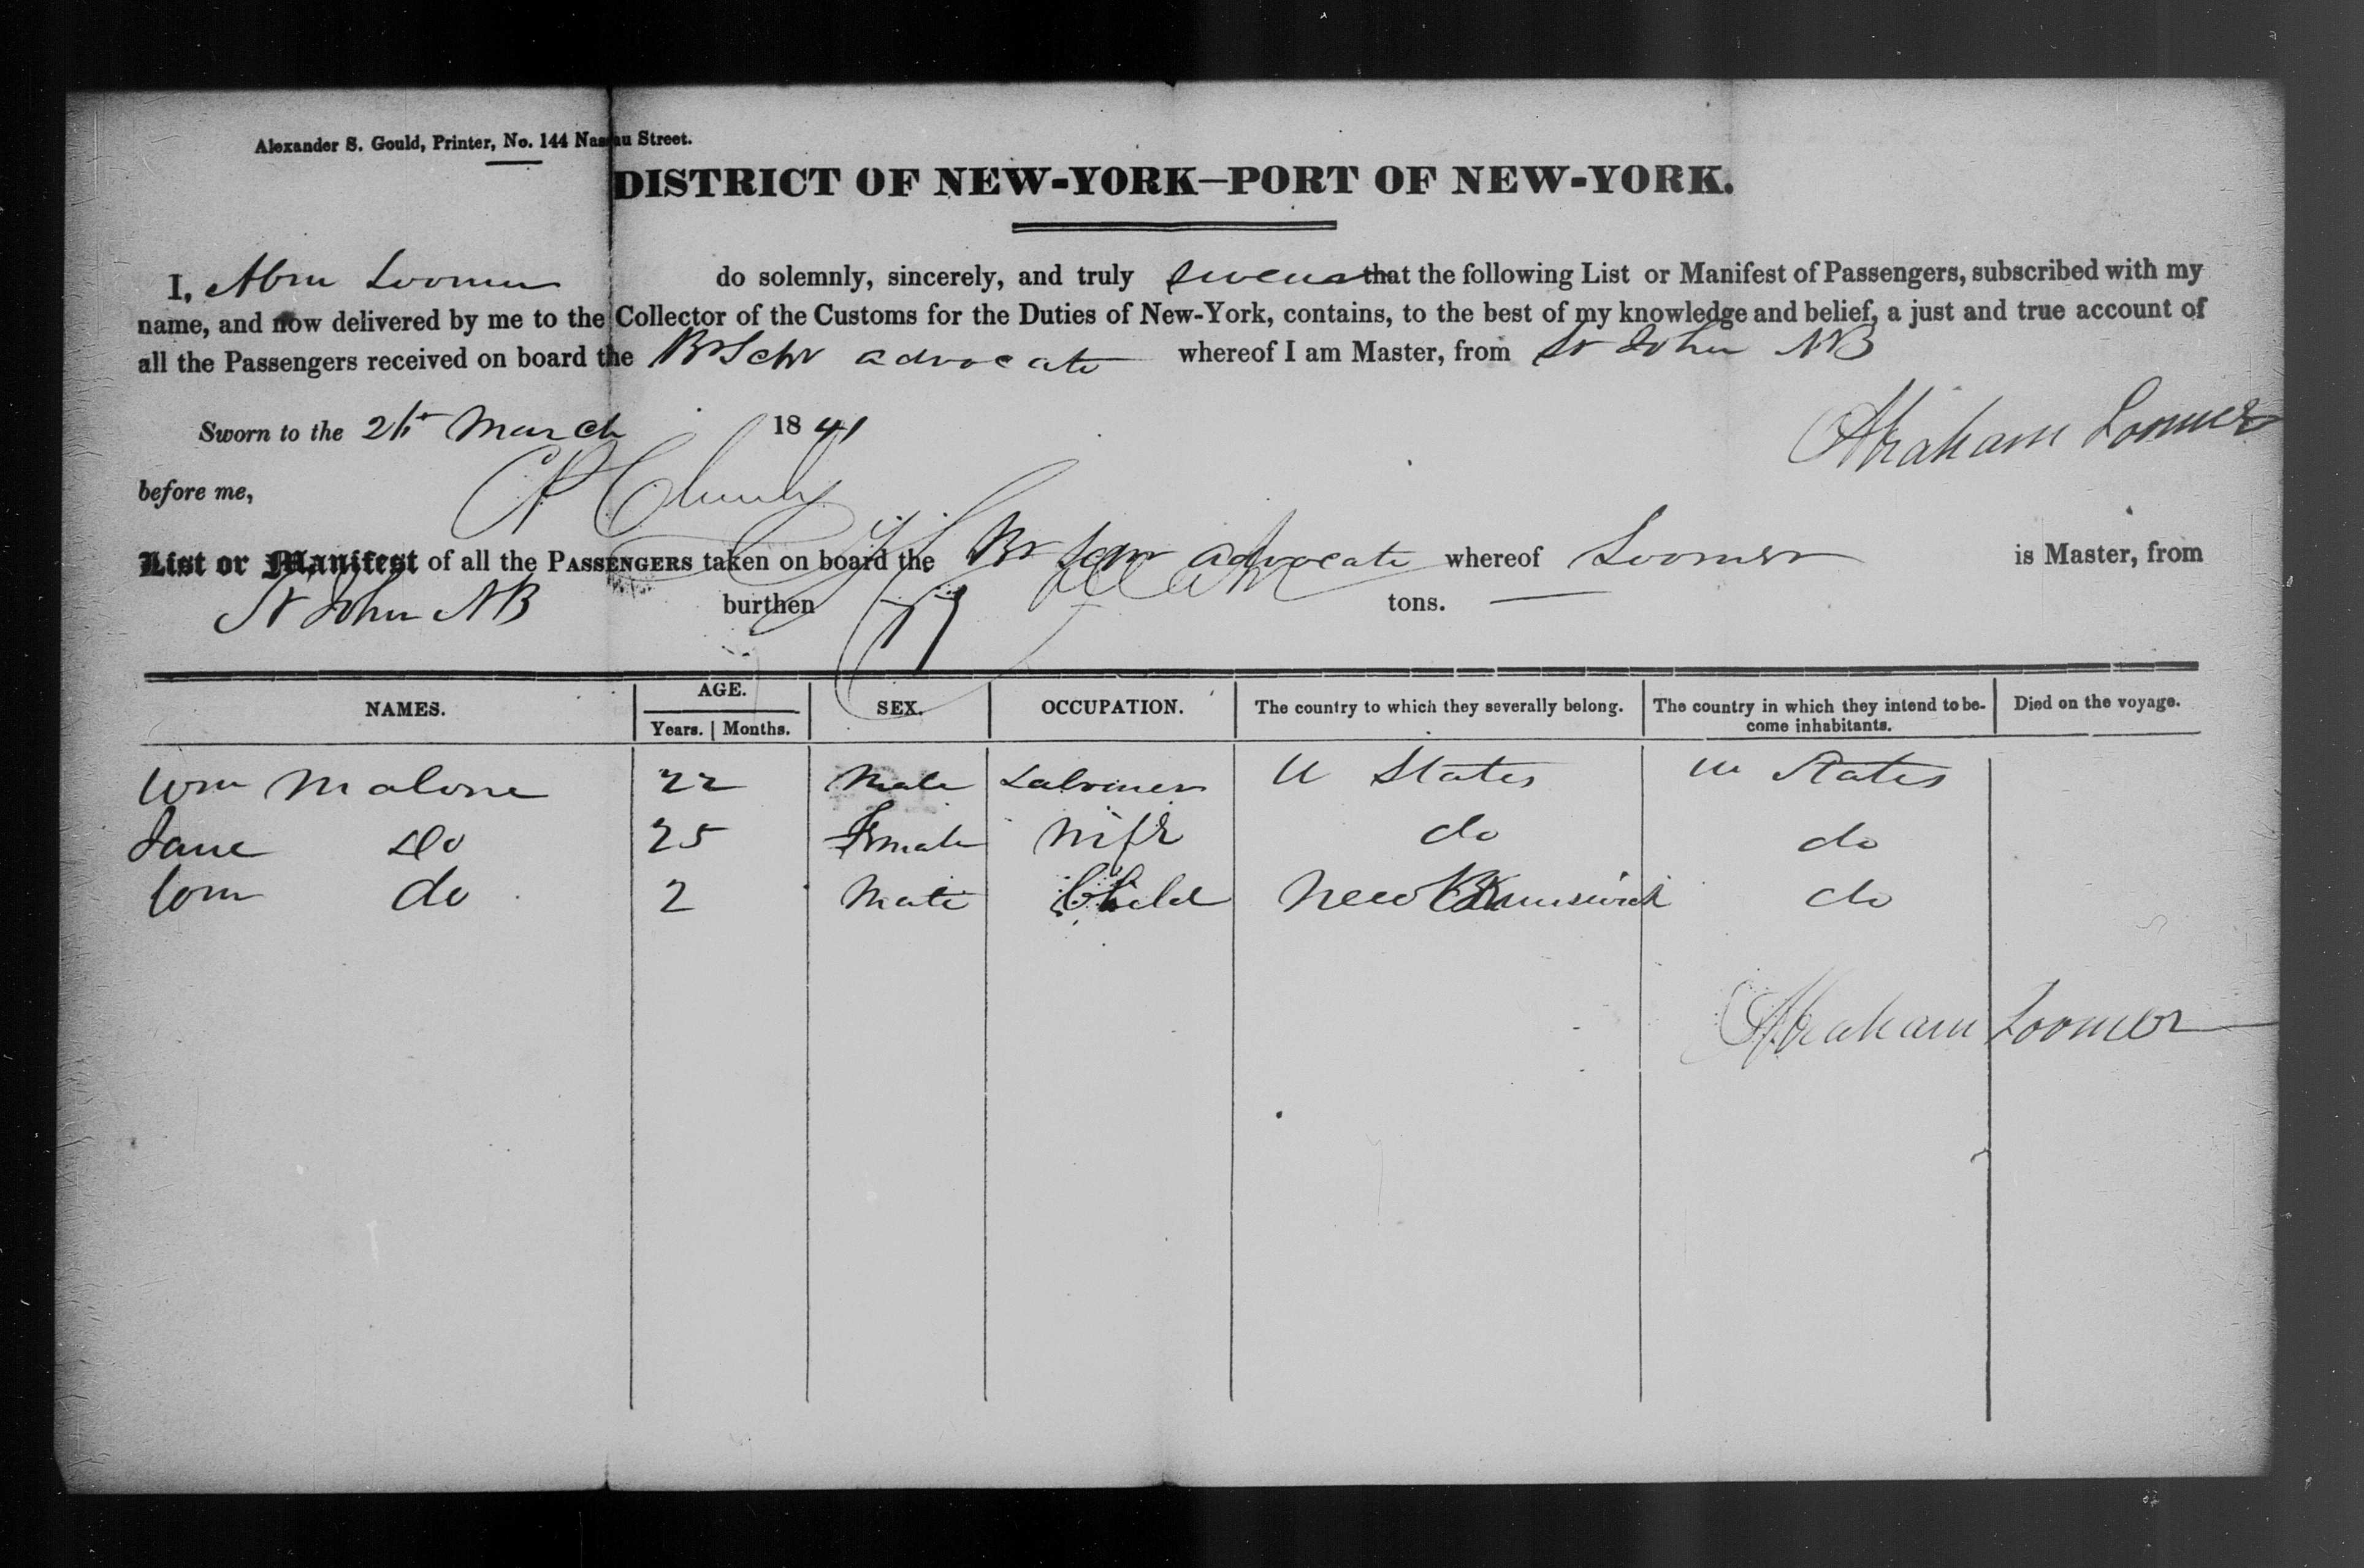 Alexander S. Gould, Printer, No. 144 Nassau Street.
DISTRICT OF NEW-YORK—PORT OF NEW-YORK.
I, Abm Loomer do solemnly, sincerely, and truly swear that the following List or Manifest of Passengers, subscribed with my
name, and now delivered by me to the Collector of the Customs for the Duties of New-York, contains, to the best of my knowledge and belief, a just and true account of
all the Passengers received on board the Br Schr advocate whereof I am Master, from St John NB
Sworn to the March 1841 Abraham Loomer
before me,
List or Manifest of all the PASSENGERS taken on board the Br Schr advocate whereof Loomer is Master, from
St John NB burthen tons.
NAMES. AGE. SEX. OCCUPATION. The country to which they severally belong. The country in which they intend to be- Died on the voyage.
Years. Months. come inhabitants.
Wm Malone 22 Male Labourer U States U States
Jane Do 25 Female Wife do do
Wm do 2 Male Child New Brunswick do
Abraham Loomer